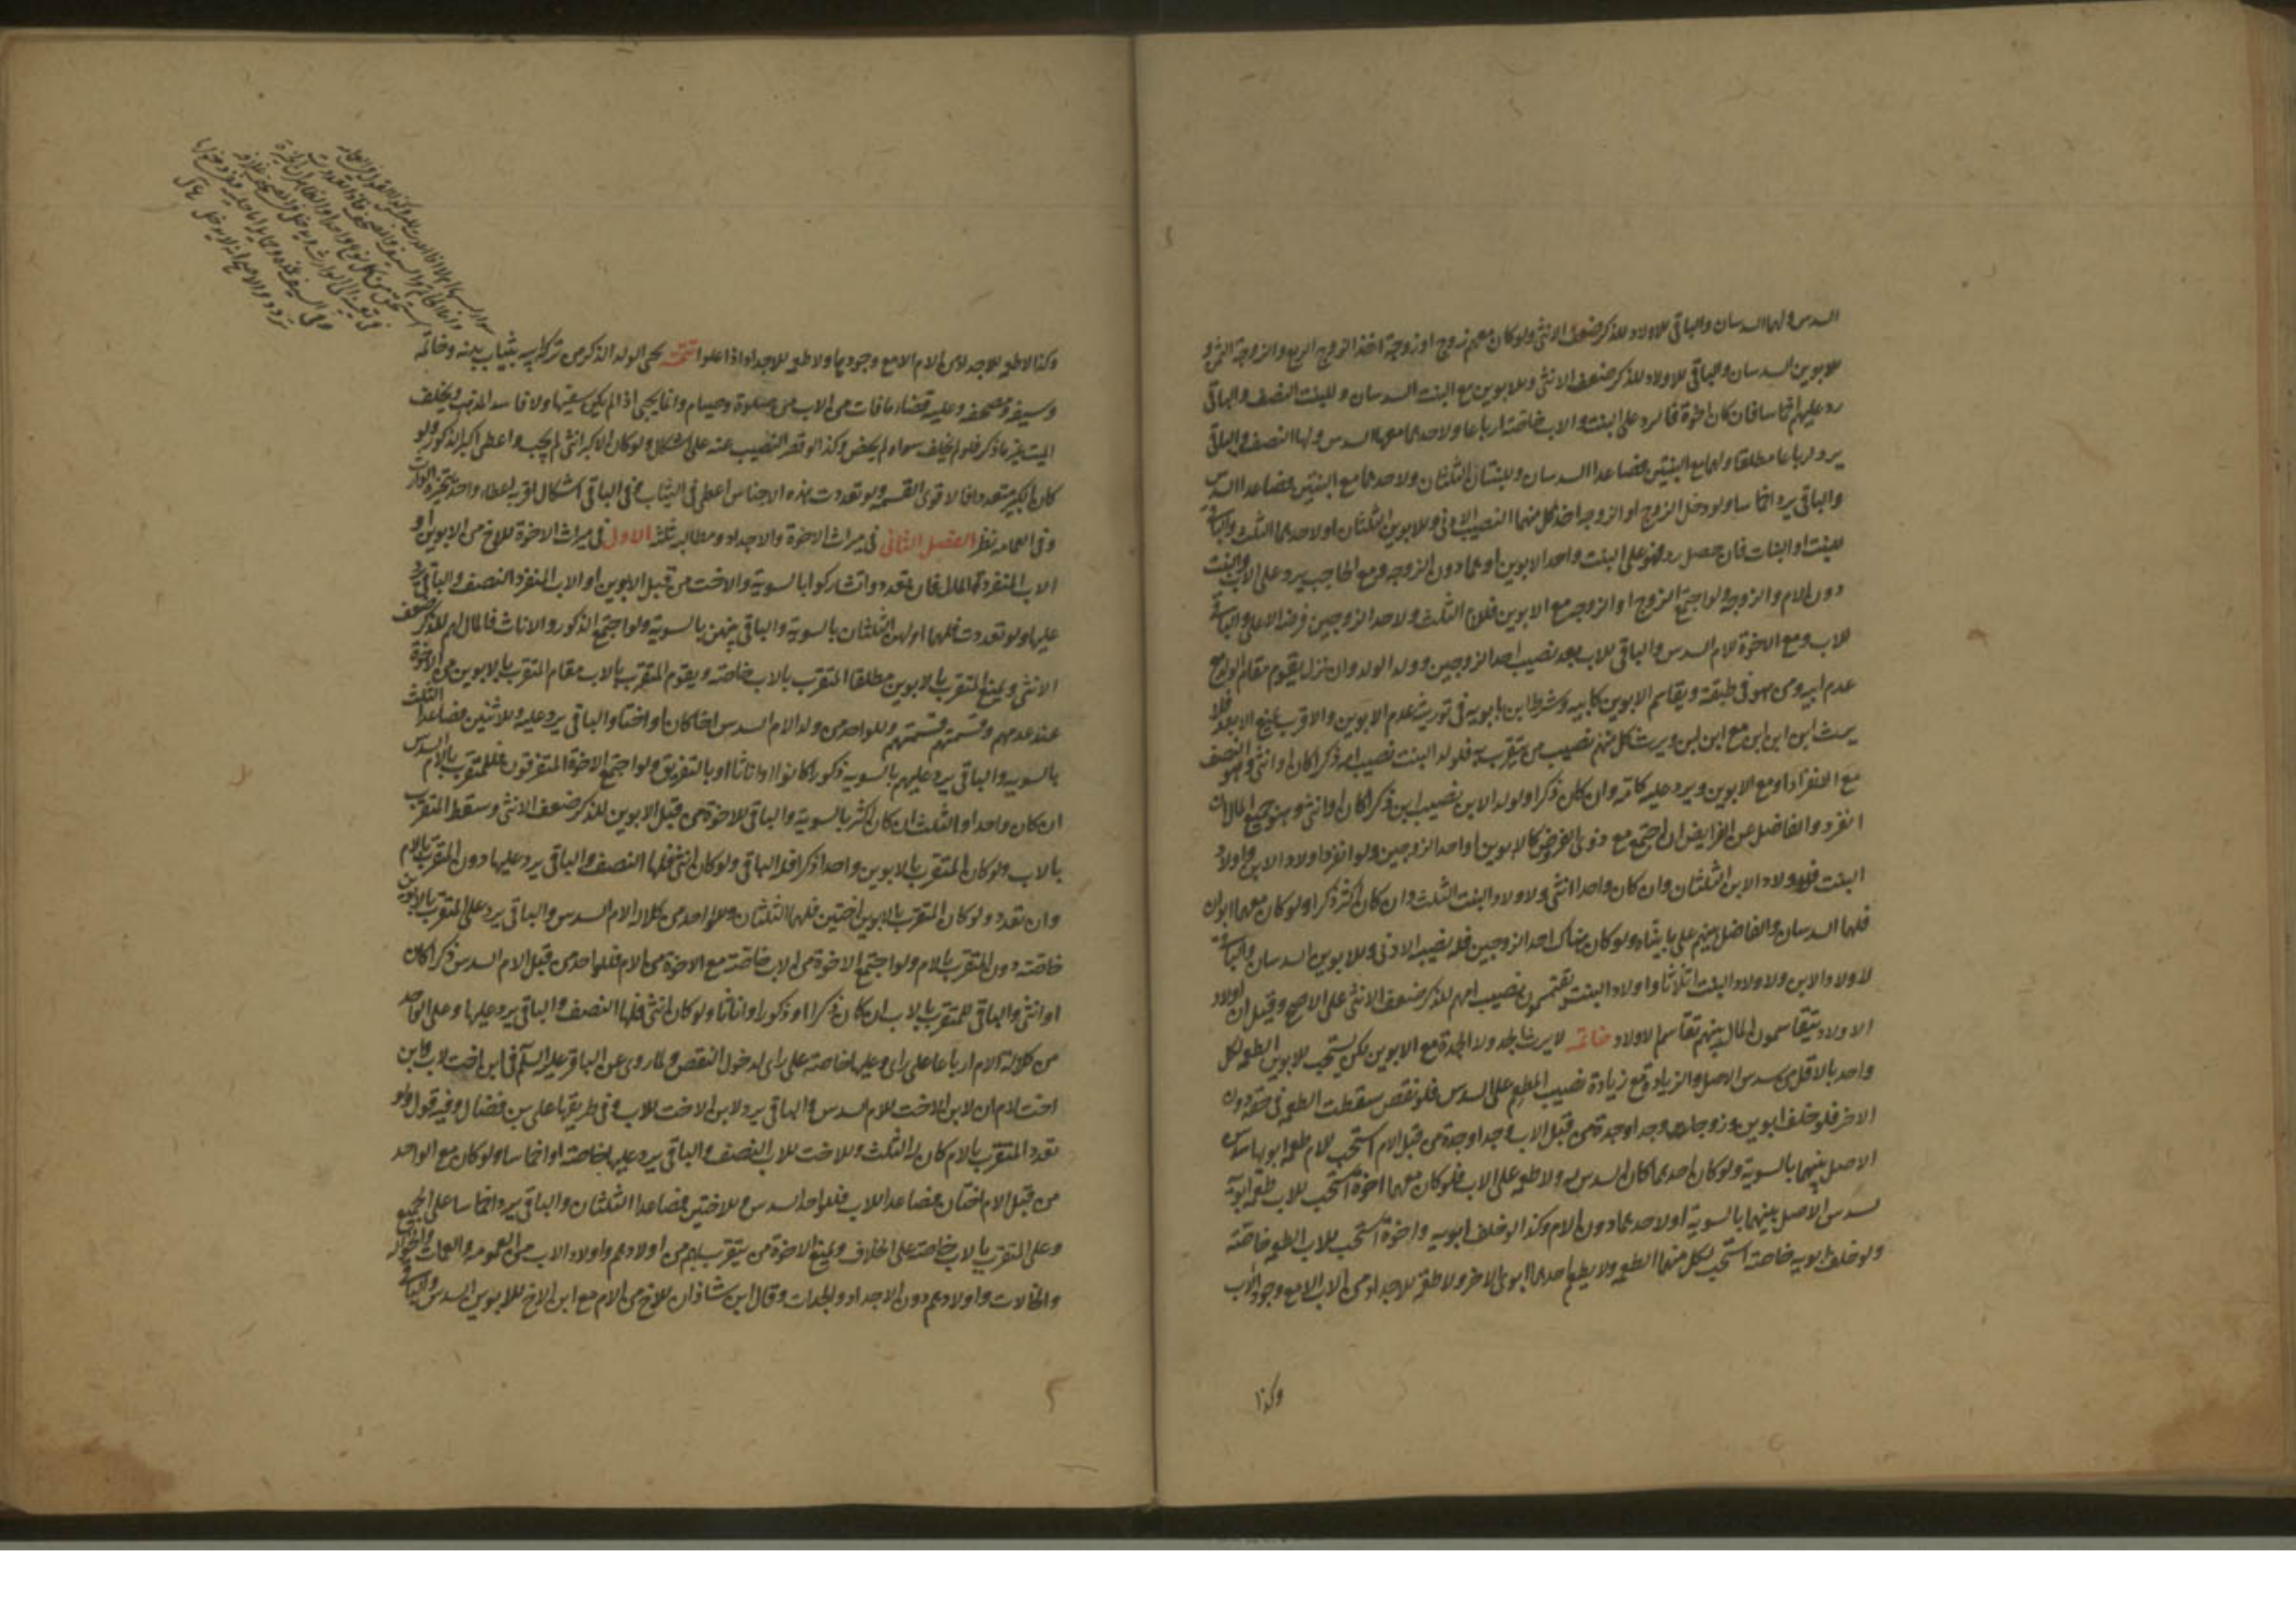 السدس ولهما السدسان والباقي للاولاد للذكر ضعف الانثى ولو كان معهم زوج او زوجة اخذ الزوج الربع والزوجة الثمن و
للابوين السدسان والباقي للاولاد للذكر ضعف الانثى وللابوين مع البنت السدسان وللبنت النصف والباقي
رد عليهم اخماسا فان كان اخوة فالرد على البنت والاب خاصة ارباعا ولاحدهما معها السدس ولها النصف والباقي
يرد ارباعا مطلقا ولهما مع البنتين فصاعدا السدسان وللبنتان الثلثان ولاحدهما مع البنتين فصاعدا السدس
والباقي يرد اخماسا ولو دخل الزوج او الزوجة اخذ كل منهما النصيب الادنى وللابوين الثلثان او لاحدهما الثلث والباقي
للبنت او البنات فان حصل رد فهو على البنت واحد الابوين او هما دون الزوجة ومع الحاجب يرد على الاب والبنت
دون الام والزوجة ولو اجتمع الزوج او الزوجة مع الابوين فللام الثلث ولاحد الزوجين فرضه الاعلى والباقي
للاب ومع الاخوة للام السدس والباقي للاب بعد نصيب احد الزوجين وولد الولد وان نزل يقوم مقام الولد مع
عدم ابيه ومن هو في طبقته ويقاسم الابوين كابيه وشرط ابن بابويه في توريثه عدم الابوين والاقرب يمنع الابعد فلا
يرث ابن ابن ابن مع ابن ابن ويرث كل منهم نصيب من يتقرب به فلولد البنت نصيب امه ذكرا كان او انثى وهو النصف
مع الانفراد او مع الابوين ويرد عليه كامه وان كان ذكرا ولولد الابن نصيب ابن ذكرا كان او انثى وهو جميع المال ان
انفرد والفاضل عن الفرايض ان اجتمع مع ذوى الفروض كالابوين او احد الزوجين ولو انفرد اولاد الابن واولاد
البنت فلاولاد الابن الثلثان وان كان واحدا انثى ولاولاد البنت الثلث وان كان اكثر ذكرا ولو كان معهما ابوان
فلهما السدسان والفاضل بينهم على ما بيناه ولو كان هناك احد الزوجين فله نصيبه الادنى وللابوين السدسان والباقي
لاولاد الابن ولاولاد البنت اثلاثا واولاد البنت يقتسمون نصيب امهم للذكر ضعف الانثى على الاصح وقيل ان اولاد
الاولاد يتقاسمون المال بينهم تقاسم الاولاد خاتمة لا يرث الجد ولا الجدة مع الابوين لكن يستحب للابوين الطعمة لكل
واحد بالاقل من سدس الاصل والزيادة مع زيادة نصيب المطعم على السدس فلو نقص سقطت الطعمة في حقه دون
الاخر فلو خلف ابوين وجدا وجدة من قبل الاب وجدا وجدة من قبل الام استحب للام طعمة ابويها سدس
الاصل بينهما بالسوية ولو كان احدهما كان السدس له ولا طعمة على الاب فلو كان معهما اخوة استحب للاب طعمة ابويه
سدس الاصل بينهما بالسوية او لاحدهما دون الام وكذا لو خلف ابويه واخوة استحب للاب الطعمة خاصة
ولو خلف ابويه خاصة استحب لكل منهما الطعمة ولا يطعم احدهما ابوى الاخر ولا طعمة للاجداد من الاب الا مع وجود الاب
وكذا
وكذا لا طعمة للاجداد من الام الا مع وجودها ولا طعمة للاجداد اذا علوا تتمة يحبى الولد الذكر من تركة ابيه بثياب بدنه وخاتمه
وسيفه ومصحفه وعليه قضاء ما فات من الاب من صلوة وصيام وانما يحبى اذا لم يكن سفيها ولا فاسد المذهب ويخلف
الميت غير ما ذكر فلو لم يخلف سواه لم يخص وكذا لو قصر النصيب عنه على اشكال ولو كان الاكبر انثى لم يحب واعطى اكبر الذكور ولو
كان الاكبر متعددا فالاقوى القسمة ولو تعددت هذه الاجناس اعطى في الثياب وفي الباقي اشكال اقربه اعطاء واحد يتخيره الوارث
وفي العمامة نظر الفصل الثاني في ميراث الاخوة والاجداد ومطالبه ثلثة الاول في ميراث الاخوة للاخ من الابوين او
الاب المنفرد المال فان تعددوا تشاركوا بالسوية والاخت من قبل الابوين او الاب المنفرد النصف والباقي يرد
عليها ولو تعددت فلهما او لهن الثلثان بالسوية والباقي بينهن بالسوية ولو اجتمع الذكور والاناث فالمال لهم للذكر ضعف
الانثى ويمنع المتقرب بالابوين مطلقا المتقرب بالاب خاصة ويقوم المتقرب بالاب مقام المتقرب بالابوين من الاخوة
عند عدمهم وقسمتهم قسمتهم وللواحد من ولد الام السدس اخا كان او اختا والباقي يرد عليه وللاثنين فصاعدا الثلث
بالسوية والباقي يرد عليهم بالسوية ذكورا كانوا او اناثا او بالتفريق ولو اجتمع الاخوة المتفرقون فللمتقرب بالام السدس
ان كان واحدا والثلث ان كان اكثر بالسوية والباقي للاخوة من قبل الابوين للذكر ضعف الانثى وسقط المتقرب
بالاب ولو كان المتقرب بالابوين واحدا ذكرا فله الباقي ولو كان انثى فلها النصف والباقي يرد عليها دون المتقرب بالام
وان تعدد ولو كان المتقرب بالابوين اختين فلهما الثلثان وللواحد من كلالة الام السدس والباقي يرد على المتقرب بالابوين
خاصة دون المتقرب بالام ولو اجتمع الاخوة من الاب خاصة مع الاخوة من الام فللواحد من قبل الام السدس ذكرا كان
او انثى والباقي للمتقرب بالاب ان كان ذكرا او ذكورا واناثا ولو كان انثى فلها النصف والباقي يرد عليها وعلى الواحد
من كلالة الام ارباعا على راى وعليها خاصة على راى لدخول النقص ولما روى عن الباقر عليه السلم في ابن اخت لاب وابن
اخت لام ان لابن الاخت للام السدس والباقي يرد لابن الاخت للاب وفي طريقها على بن فضال وفيه قول ولو
تعدد المتقرب بالام كان له الثلث وللاخت للاب النصف والباقي يرد عليها خاصة او اخماسا ولو كان مع الواحد
من قبل الام اختان فصاعدا للاب فللواحد السدس وللاختين فصاعدا الثلثان والباقي يرد اخماسا على الجميع
وعلى المتقرب بالاب خاصة على الخلاف ويمنع الاخوة من يتقرب بهم من اولادهم واولاد الاب من العمومة والعمات والاخوال
والخالات واولادهم دون الاجداد والجدات وقال ابن شاذان للاخ من الام مع ابن الاخ للابوين السدس والباقي